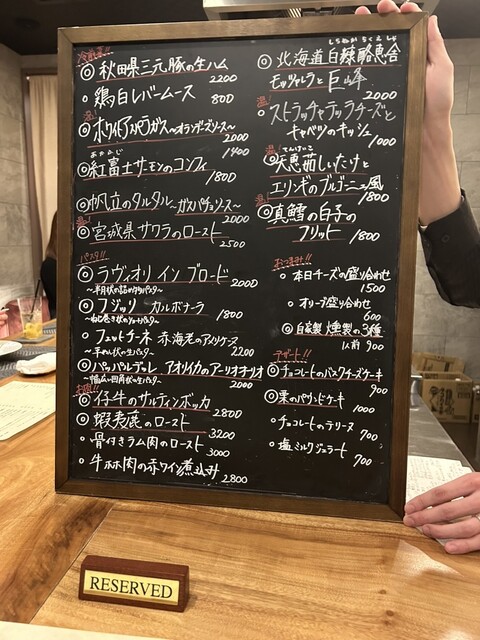 冷前菜!!
◎秋田県三元豚の生ハム
2200
・鶏白レバームース 800
温!
◎ホワイトアスパラガス〜オランデーズソース〜
2000
1400
あかふじ
◎紅富士サーモンのコンフィ
1800
◎帆立のタルタル〜ガスパチョソース〜
2000
温!
◎宮城県サワラのロースト
2500
パスタ!!
◎ラヴィオリ イン ブロード
〜半月状の詰め物パスタ〜 2000
◎フジッリ カルボナーラ
〜ねじ巻き状のショートパスタ〜 1800
・フェットチーネ 赤海老のアメリケーヌ
〜平めん状の生パスタ〜 2200
◎パッパルデッレ アオリイカのアーリオオーリオ
〜幅広い四角状の生パスタ〜 2000
お肉!!
◎仔牛のサルティンボッカ
2800
◎蝦夷鹿のロースト
3200
・骨付きラム肉のロースト
3000
・牛ホホ肉の赤ワイン煮込み
2800
しらぬかちくえしゃ
◎北海道白糠酪恵舎
モッツァレラと巨峰
2000
温!
・ストラッチャテッラチーズと
キャベツのキッシュ
1000
温! てんけいこ
◎天恵茹しいたけと
エリンギのブルゴーニュ風
1800
温!
◎真鱈の白子の
フリット 1800
おつまみ!!
・本日チーズの盛り合わせ
1500
・オリーブ盛り合わせ
600
◎自家製燻製の3種
1人前 900
デザート!!
◎チョコレートのバスクチーズケーキ
900
◎栗のパウンドケーキ
1000
・チョコレートのテリーヌ
700
・塩ミルクジェラート
700
RESERVED